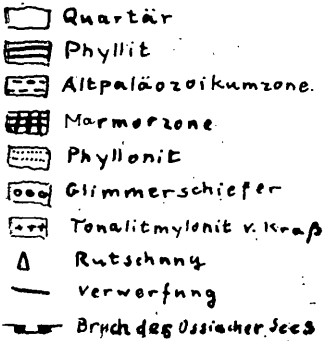 Quartär
Phyllit
Altpaläozoikumzone.
Marmorzone
Phyllonit
Glimmerschiefer
Tonalitmylonit v. Kraß
Rutschung
Verwerfung
Bruch des Ossiacher Sees